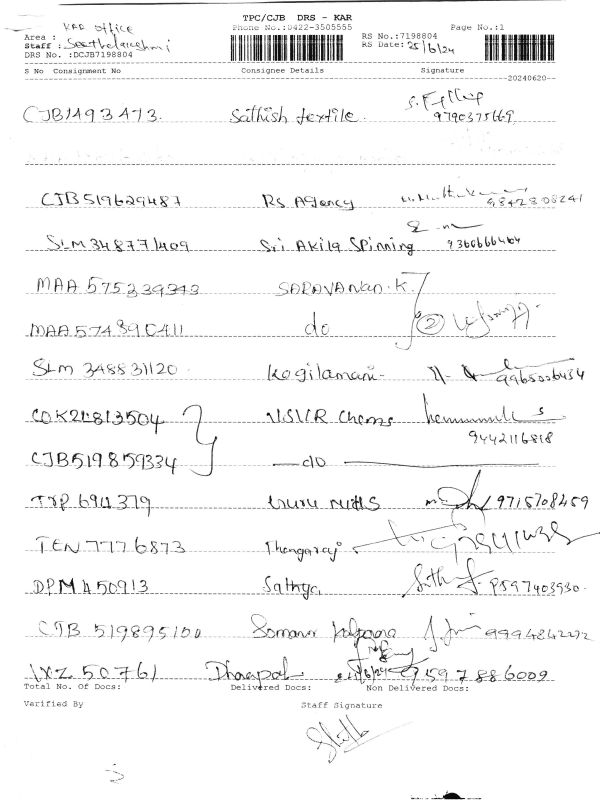 TPC/CJB DRS - KAR
KAR office
Phone No.:0422-3505555 Page No.:1
Area :
RS No.:7198804
Staff : Seethalakshmi
RS Date: 25/6/24
DRS No. :DCJB7198804
S No Consignment No Consignee Details Signature
20240620
CJB1493473. Sathish textile.
9790375669
CJB519629487 Rs Agency 9842808241
SLM 348771409 Sri Akila Spinning 9360666464
MAA 575339343 SARAVANAN.K.
MAA 574890411 do 2
SLM 348831120 Kogilamani- 9965006434
COK 24813504 USVR Chems
9442116818
CJB519859334 do
TRP 694379 Guru Mills 9715708459
TEN 7776873 Thangaraj
DPM 450913 Sathya P597403930
CJB 519895100 9994842272
IXZ 50761 Dhanapal 9597886009
Total No. Of Docs: Delivered Docs: Non Delivered Docs:
Varified By Staff Signature